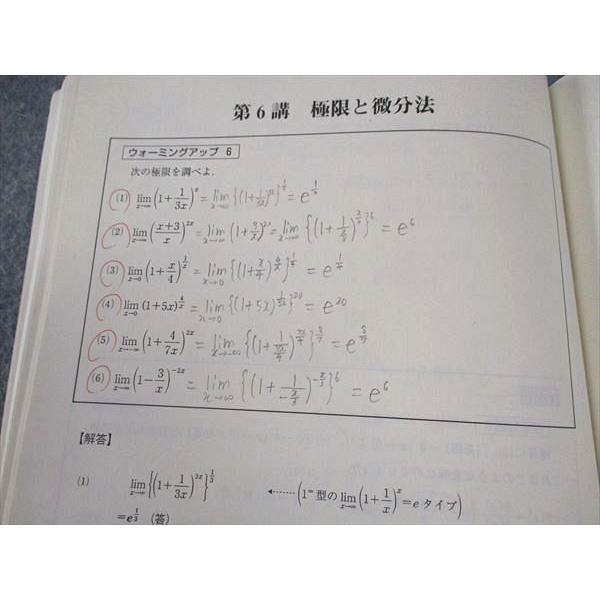 第6講 極限と微分法
ウォーミングアップ 6
次の極限を調べよ.
(1) lim_{x→∞}(1+1/(3x))^x = lim_{x→∞}{(1+1/(3x))^{3x}}^{1/3} = e^{1/3}
(2) lim_{x→∞}((x+3)/x)^{2x} = lim_{x→∞}(1+3/x)^{2x} = lim_{x→∞}{(1+1/(x/3))^{x/3}}^6 = e^6
(3) lim_{x→0}(1+x/4)^{1/x} = lim_{x→0}{(1+x/4)^{4/x}}^{1/4} = e^{1/4}
(4) lim_{x→0}(1+5x)^{4/x} = lim_{x→0}{(1+5x)^{1/(5x)}}^{20} = e^{20}
(5) lim_{x→-∞}(1+4/(7x))^{2x} = lim_{x→-∞}{(1+1/(7x/4))^{7x/4}}^{8/7} = e^{8/7}
(6) lim_{x→∞}(1-3/x)^{-2x} = lim_{x→∞}{(1+1/(-x/3))^{-x/3}}^6 = e^6
【解答】
(1) lim_{x→∞}{(1+1/(3x))^{3x}}^{1/3} ←……(1^∞型のlim_{x→∞}(1+1/x)^x=eタイプ)
=e^{1/3} (答)